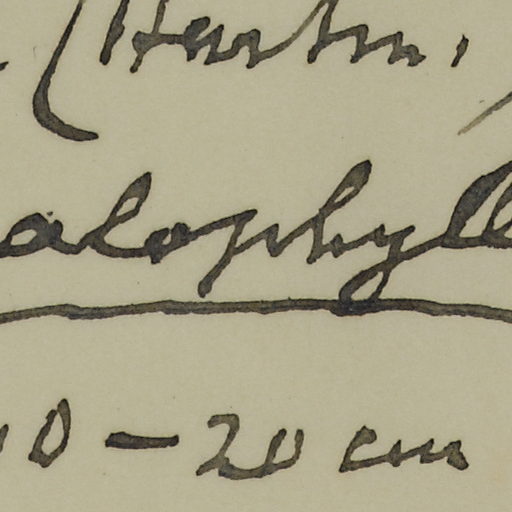 (Hartm.
alophyll
10 - 20 cm